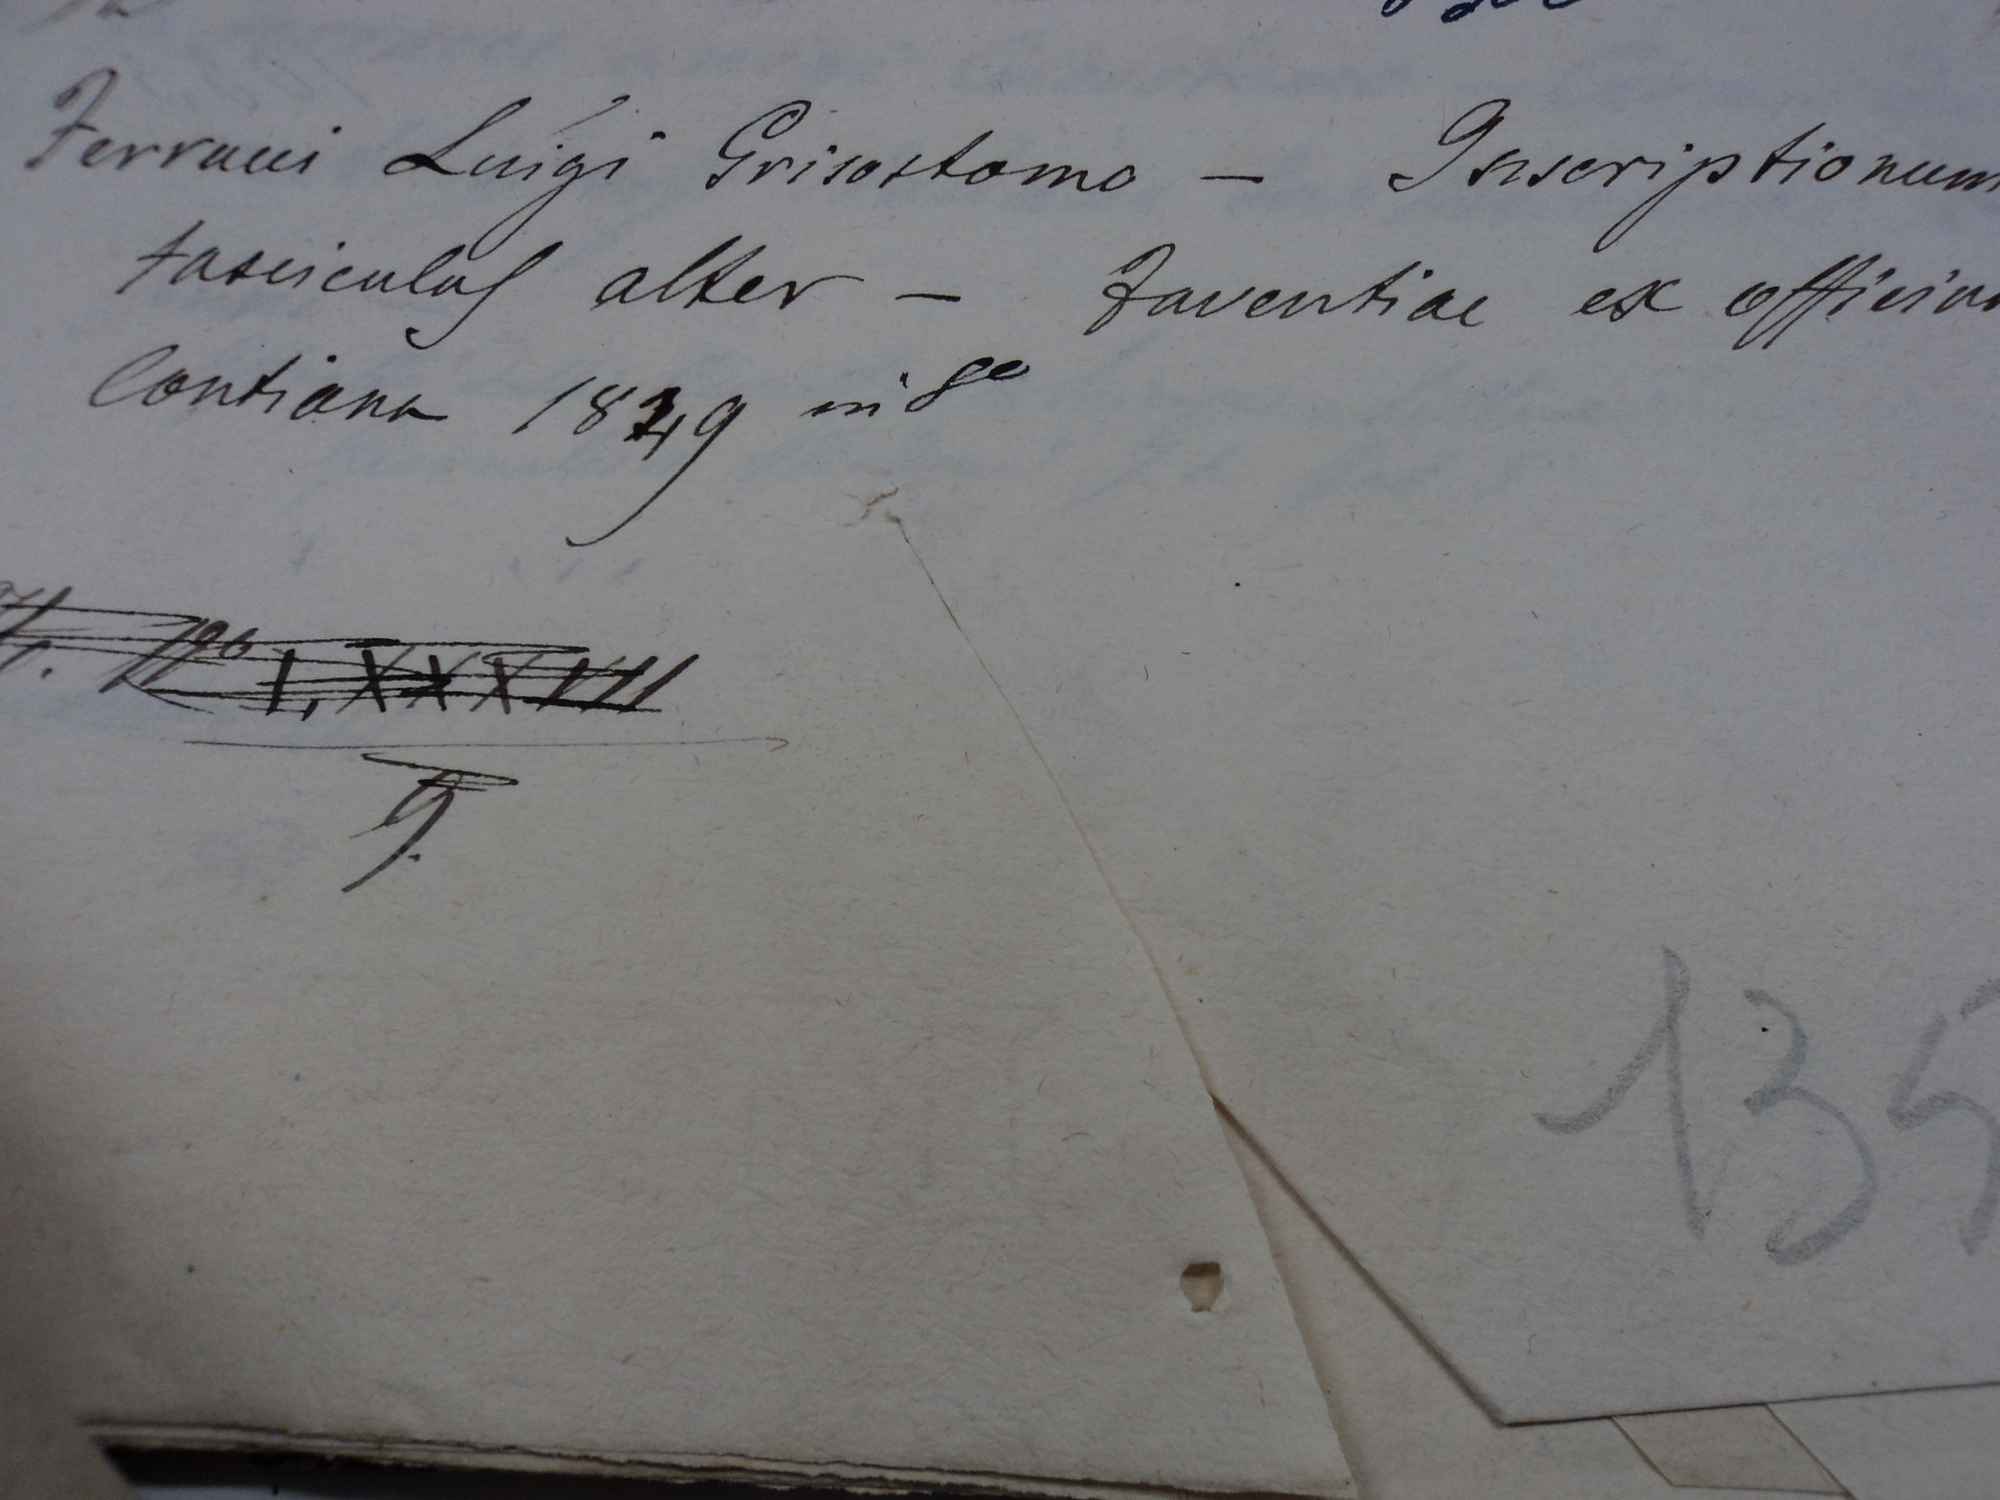 Ferrucci Luigi Grisostomo – Inscriptionum
fasciculus alter – Faventiae ex officina
Contiana 1849 in 8º
Nº I, XXXVIII
9.
135